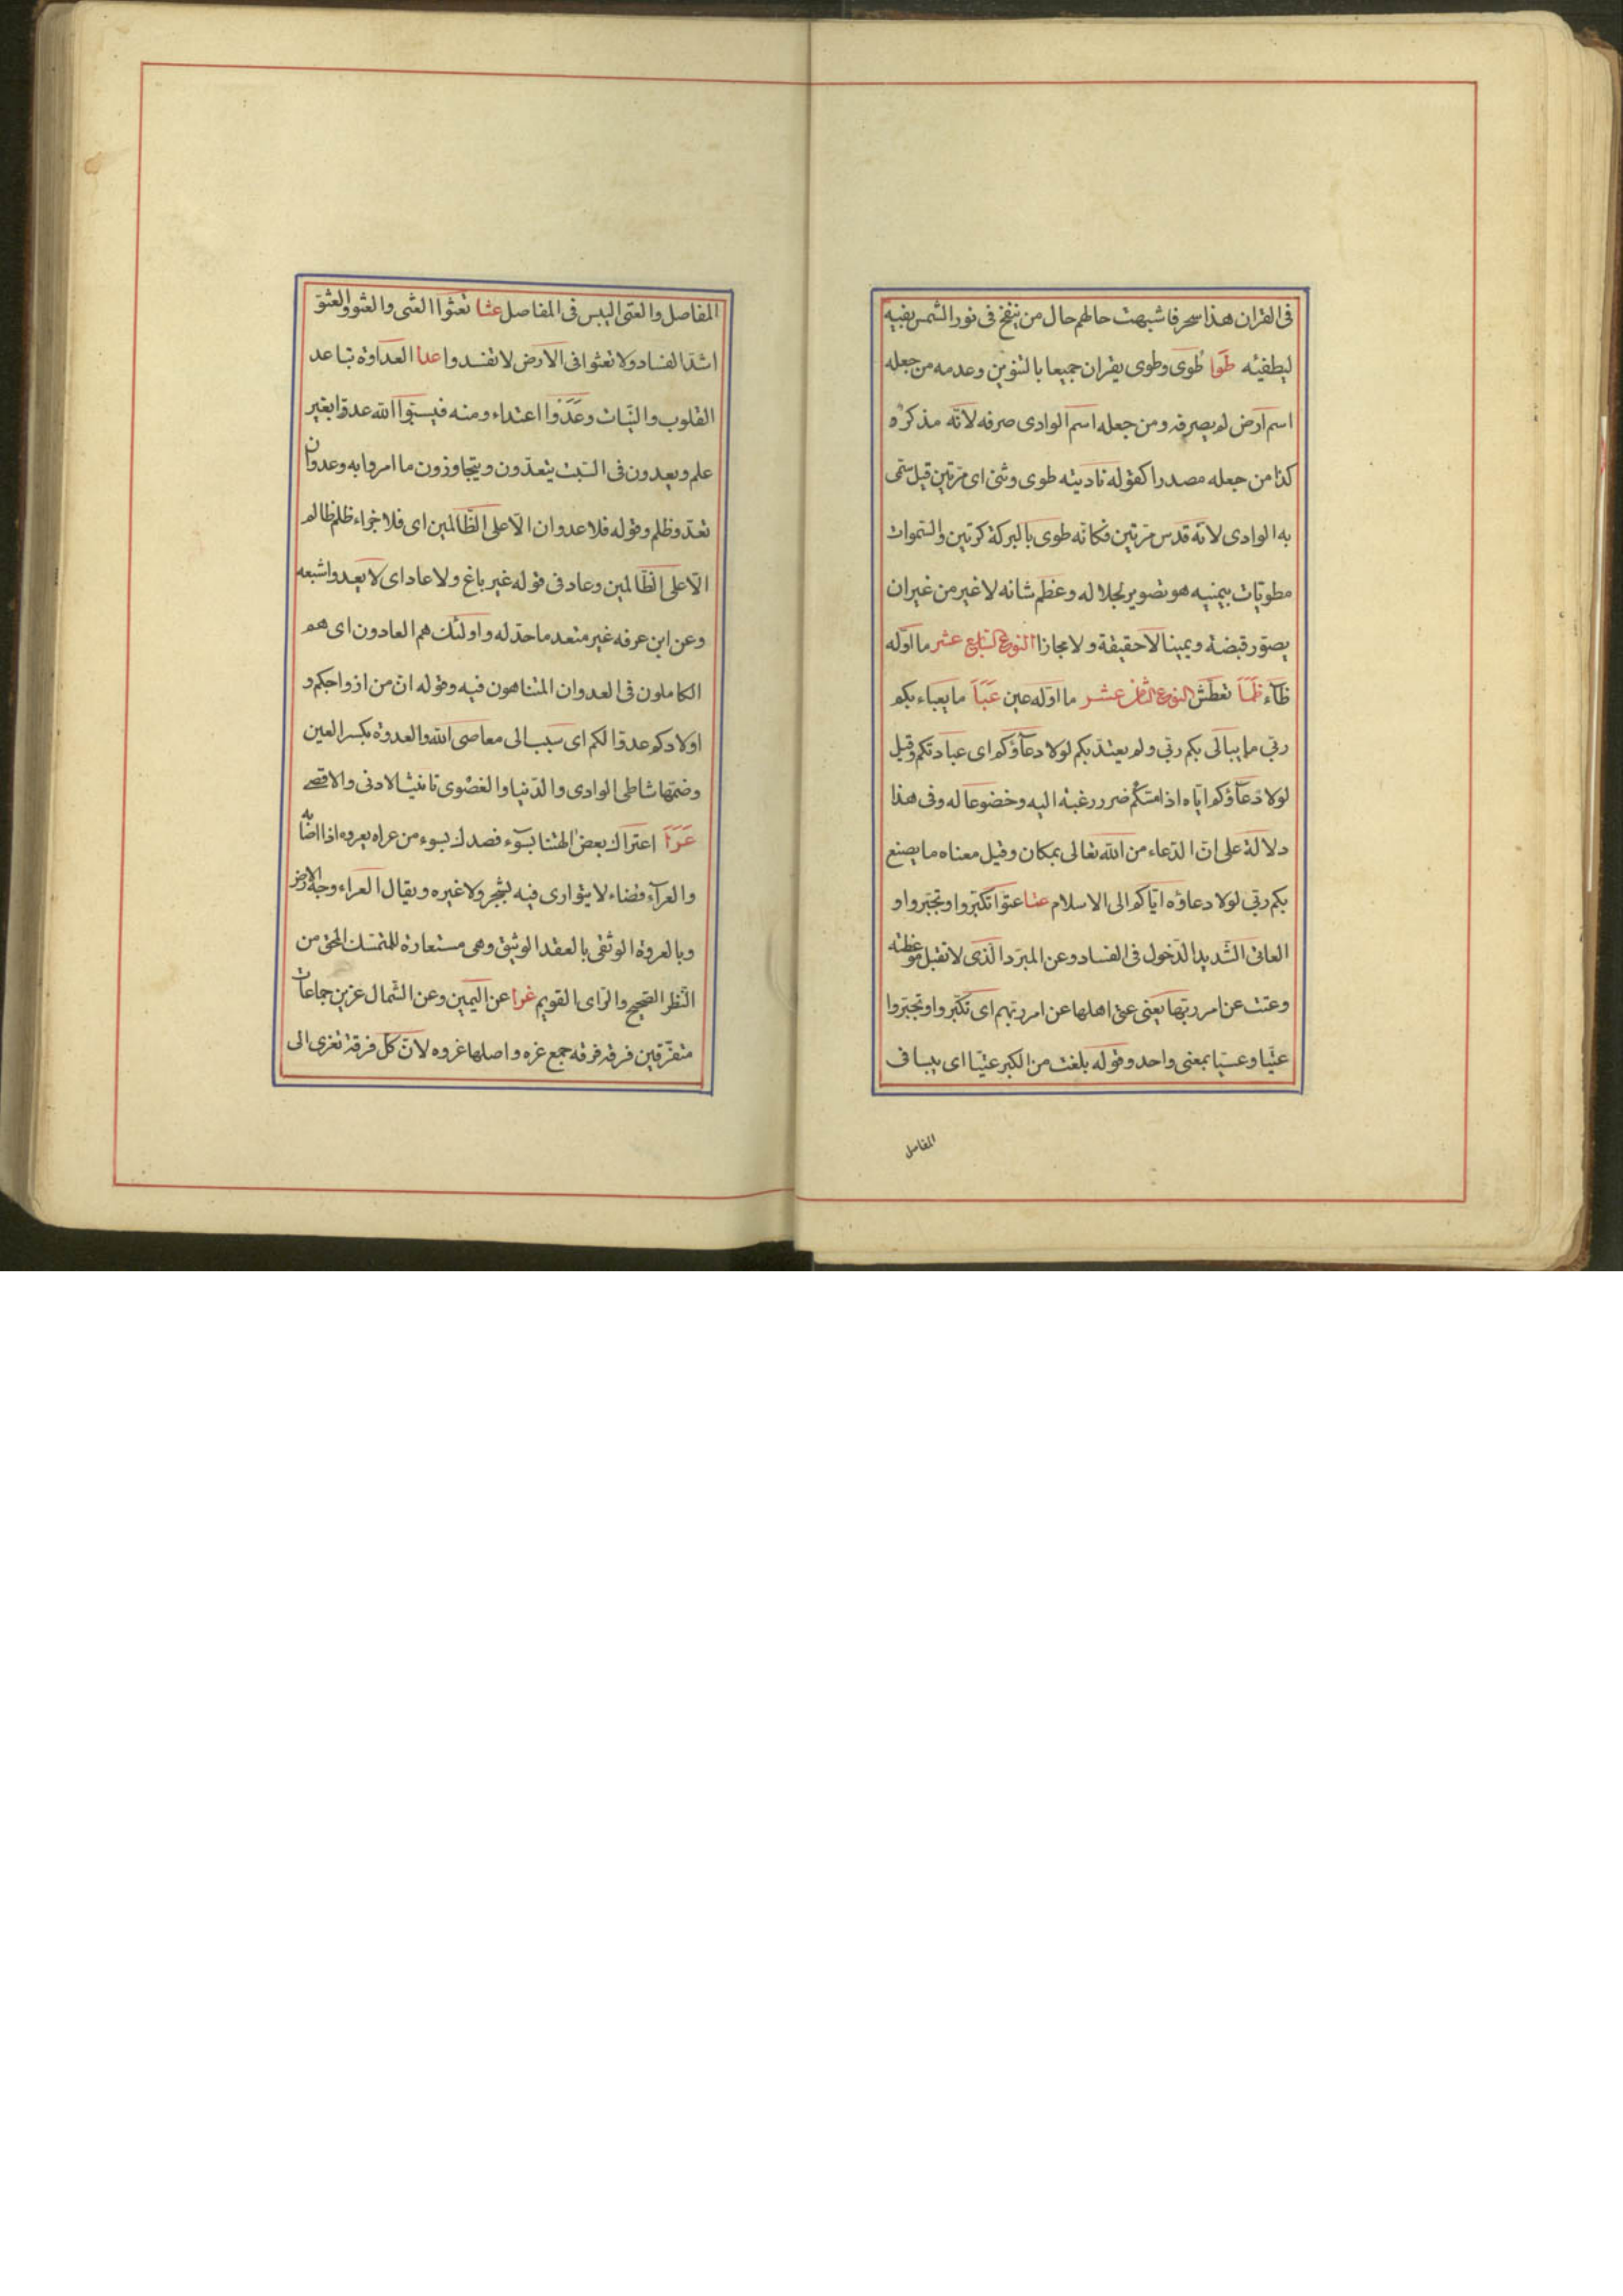 فى القران هذا سحر فاشبهت حالهم حال من ينفخ فى نور الشمس بفيه
ليطفيئه طوا طوى وطوى يقران جميعا بالتنوين وعدمه من جعله
اسم ارض لم يصرفه ومن جعله اسم الوادى صرفه لانّه مذكر و
كذا من جعله مصدرا كقوله ناديته طوى وثنى اى مرّتين قيل سمّى
به الوادى لانّه قدس مرّتين فكانّه طوى بالبركة كرّتين والسّموات
مطويّات بيمنيه هو تصوير لجلاله وعظم شانه لا غير من غير ان
يصوّر قبضة ويمينا لا حقيقة ولا مجازا النوع السّابع عشر ما اوّله
ظآء ظمأ تعطّش النوع الثامن عشر ما اوّله عين عبأ ما يعباء بكم
ربّى ما يبالى بكم ربّى ولم يعتدّ بكم لولا دعآؤكم اى عبادتكم وقيل
لولا دعآؤكم ايّاه اذا مسّكم ضرر رغبة اليه وخضوعا له وفى هذا
دلالة على انّ الدّعاء من الله تعالى بمكان وقيل معناه ما يصنع
بكم ربّى لولا دعاؤه ايّاكم الى الاسلام عتا عتوا تكبّروا وتجبّروا و
العاتى الشّديد الدّخول فى الفساد وعن المبرّد الّذى لا تقبل موعظته
وعتت عن امر ربّها يعنى عتى اهلها عن امر ربّهم اى تكبّروا وتجبّروا
عتيّا وعسيّا بمعنى واحد وقوله بلغت من الكبر عتيّا اى يبسا فى
المفاصل
المفاصل والعتى اليبس فى المفاصل عثا تعثوا العثى والعثو والعثوّ
اشدّ الفساد ولا تعثوا فى الارض لا تفسدوا عدا العداوة تباعد
القلوب والنيّات وعدوا اعتداء ومنه فيسبّوا الله عدوا بغير
علم ويعدون فى السّبت يتعدّون ويتجاوزون ما امروا به وعدوان
تعدّ وظلم وقوله فلا عدوان الّا على الظّالمين اى فلا جزاء ظلم ظالم
الّا على الظّالمين وعاد فى قوله غير باغ ولا عاد اى لا يعدوا شبعه
وعن ابن عرفه غير متعد ما حدّ له واولئك هم العادون اى هم
الكاملون فى العدوان المتناهون فيه وقوله انّ من ازواجكم و
اولادكم عدوّا لكم اى سبب الى معاصى الله والعدوة بكسر العين
وضمّها شاطى الوادى والدّنيا والقصوى تانيث الادنى والاقصى
عرا اعتراك بعض الهتنا بسوء قصدك بسوء من عراه يعروه اذا اصابه
والعرآء فضاء لا يتوارى فيه بشجر ولا غيره ويقال العراء وجه الارض
وبالعروة الوثقى بالعقد الوثيق وهى مستعارة للمتمسّك المحق من
النّظر الصّحيح والرّاى القويم عزا عن اليمين وعن الشّمال عزين جماعات
متفرّقين فرقة فرقه جمع عزه واصلها عزوه لانّ كلّ فرقة تعزى الى